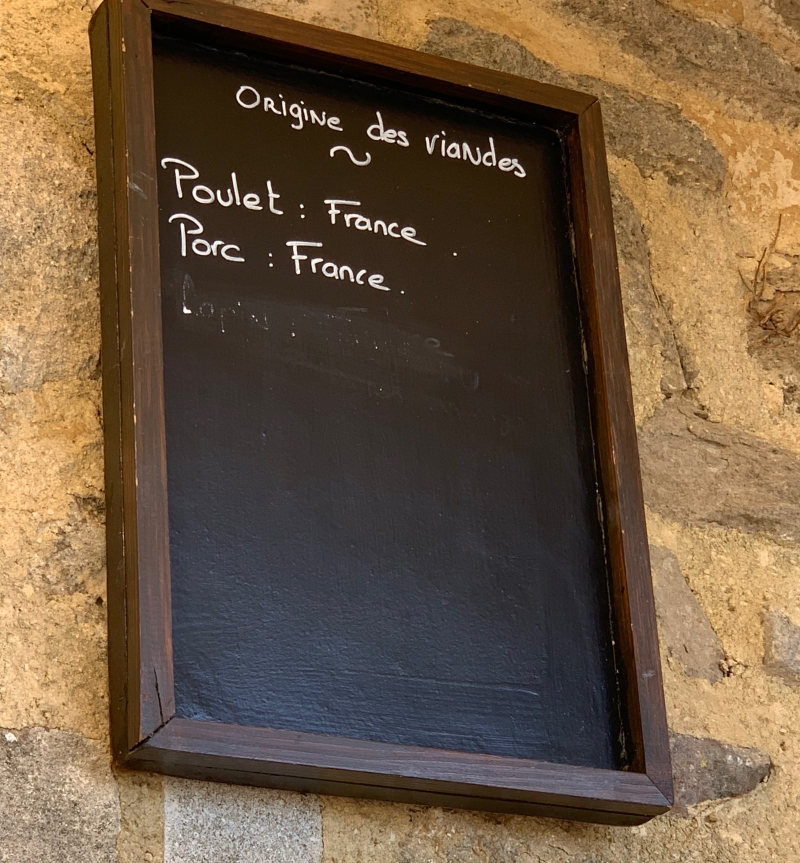 Origine des viandes
~
Poulet : France .
Porc : France.